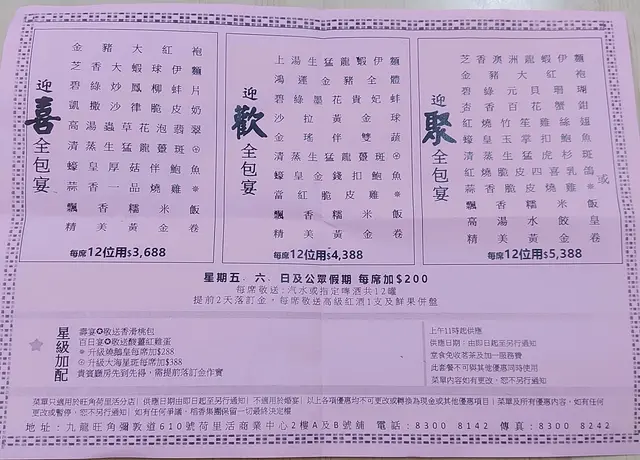 迎喜全包宴
金豬大紅袍
芝香大蝦球伊麵
碧綠炒鳳柳蚌片
凱撒沙律脆皮奶
高湯蟲草花泡翡翠
清蒸生猛龍躉斑⊙
蠔皇厚菇伴鮑魚
蒜香一品燒雞*
飄香糯米飯
精美黃金卷
每席12位用$3,688
迎歡全包宴
上湯生猛龍蝦伊麵
鴻運金豬全體
碧綠墨花貴妃蚌
沙拉黃金球
金瑤伴雙蔬
清蒸生猛龍躉斑⊙
蠔皇金錢扣鮑魚
當紅脆皮雞*
飄香糯米飯
精美黃金卷
每席12位用$4,388
迎聚全包宴
芝香澳洲龍蝦伊麵
金豬大紅袍
碧綠元貝珊瑚
杏香百花蟹鉗
紅燒竹笙雞絲翅
蠔皇玉掌扣鮑魚
清蒸生猛虎杉斑
紅燒脆皮四喜乳鴿或
蒜香脆皮燒雞*
飄香糯米飯
高湯水餃皇
精美黃金卷
每席12位用$5,388
星期五、六、日及公眾假期 每席加$200
每席敬送:汽水或指定啤酒共12罐
提前2天落訂金,每席敬送高級紅酒1支及鮮果拼盤
星級加配
壽宴✪敬送香滑桃包
百日宴✪敬送酸薑紅雞蛋
* 升級燒鵝皇每席加$288
⊙ 升級大海星斑每席加$388
貴賓廳房先到先得,需提前落訂金作實
上午11時起供應
供應日期:由即日起至另行通知
堂食免收茗茶及加一服務費
此套餐不可與其他優惠同時使用
菜單內容如有更改,恕不另行通知
菜單只適用於旺角荷里活分店|供應日期由即日起至另行通知|不適用於婚宴|以上各項優惠均不可更改或轉換為現金或其他優惠項目|菜單及所有優惠內容,如有任何
更改或暫停,恕不另行通知|如有任何爭議,稻香集團保留一切最終決定權
地址:九龍旺角彌敦道610號荷里活商業中心2樓A及B號鋪 電話:8300 8142 傳真:8300 8242